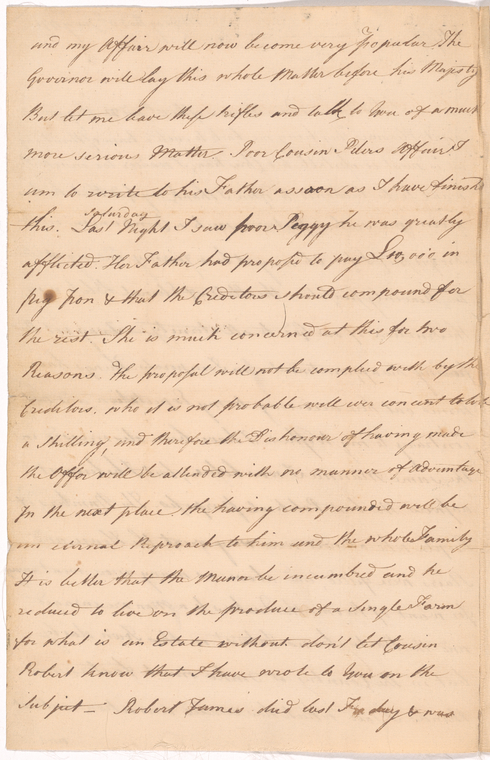 and my Affair will now become very popular The
Governor will lay this whole Matter before his Majesty
But let me leave these trifles and talk to You of a much
more serious Matter. Poor Cousin Peters Affair I
am to write to his Father assoon as I have finish'd
this. Saturday
Last Night I saw poor Peggy he was greatly
afflicted. Her Father had proposed to pay £10,000 in
Pig Iron & that the Creditors should compound for
the rest. She is much concerned at this for two
Reasons. The proposal will not be complied with by the
Creditors, who it is not probable will ever concent to lose
a Shilling, and therefore the Dishonour of having made
the Offer will be attended with no manner of advantage
In the next place the having compounded will be
an eternal Reproach to him and the whole Family
It is better that the Manor be incumbred and he
reduced to live on the produce of a Single Farm
for what is an Estate without. don't let Cousin
Robert know that I have wrote to You on the
Subject — Robert James died last Friday & was